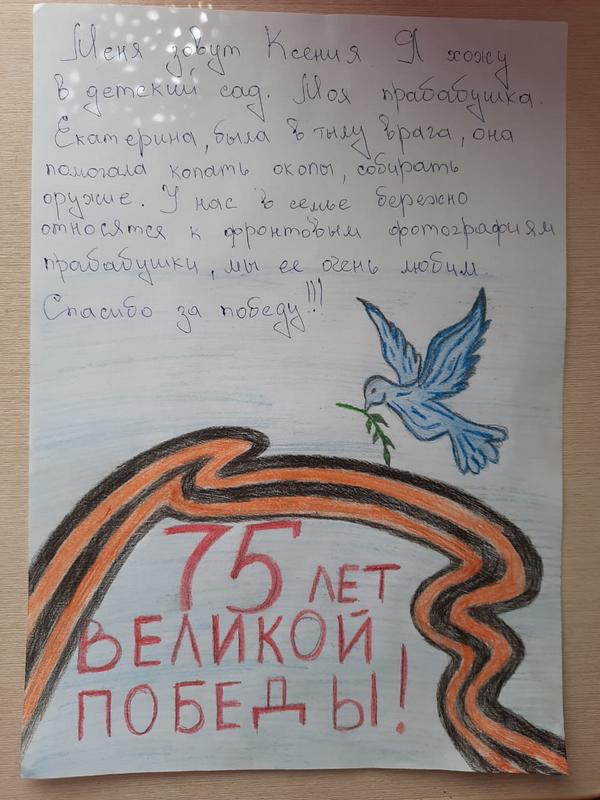 Меня зовут Ксения Я хожу
в детский сад. Моя прабабушка
Екатерина, была в тылу врага, она
помогала копать окопы, собирать
оружие. У нас в семье бережно
относятся к фронтовым фотографиям
прабабушки, мы ее очень любим.
Спасибо за победу!!!
75 ЛЕТ
ВЕЛИКОЙ
ПОБЕДЫ!